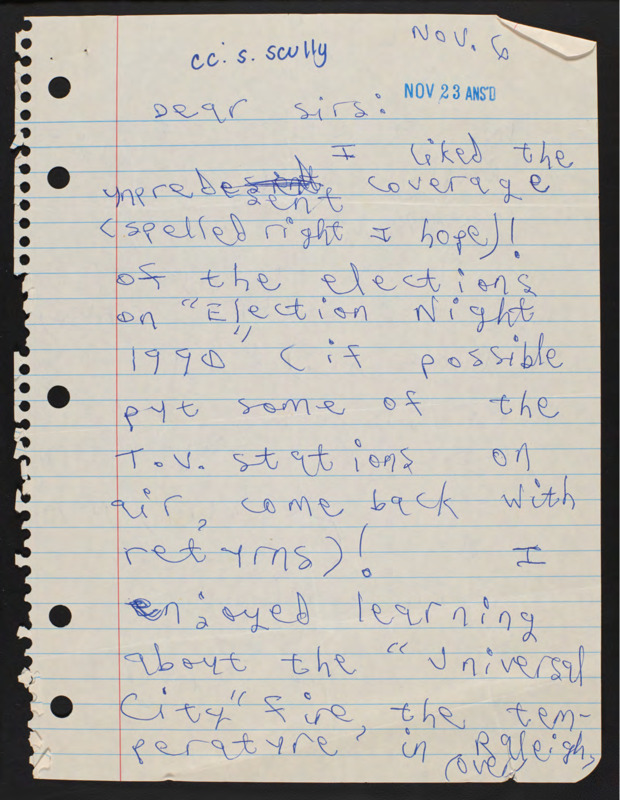 Nov. 6
cc: s. scully
NOV 23 ANS'D
Dear sirs:
I liked the
unpredesent coverage
(spelled right I hope)!
of the elections
on "Election Night
1990" (if possible
put some of the
T.V. stations on
air, come back with
returns)! I
enjoyed learning
about the "Universal
City" fire, the tem-
perature in Raleigh,
(over)